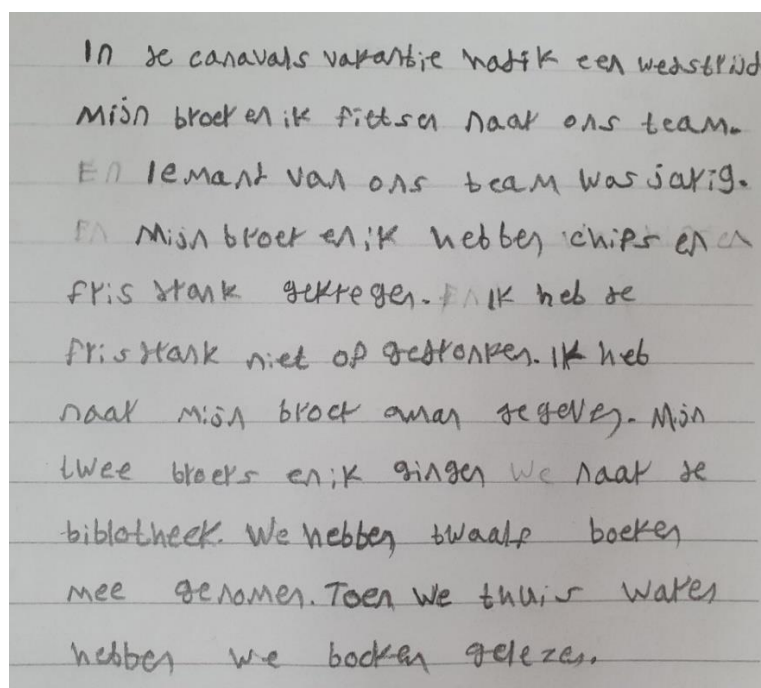 In de canavals vakantie had ik een wedstrijd
Mijn broer en ik fietsen naar ons team.
En Iemant van ons team was jarig.
En Mijn broer en ik hebben chips en en
fris drank gekregen. En Ik heb de
fris drank niet op gedronken. Ik heb
naar mijn broer aman gegeven. Mijn
twee broers en ik gingen we naar de
biblotheek. We hebben twaalf boeken
mee genomen. Toen we thuis waren
hebben we boeken gelezen.